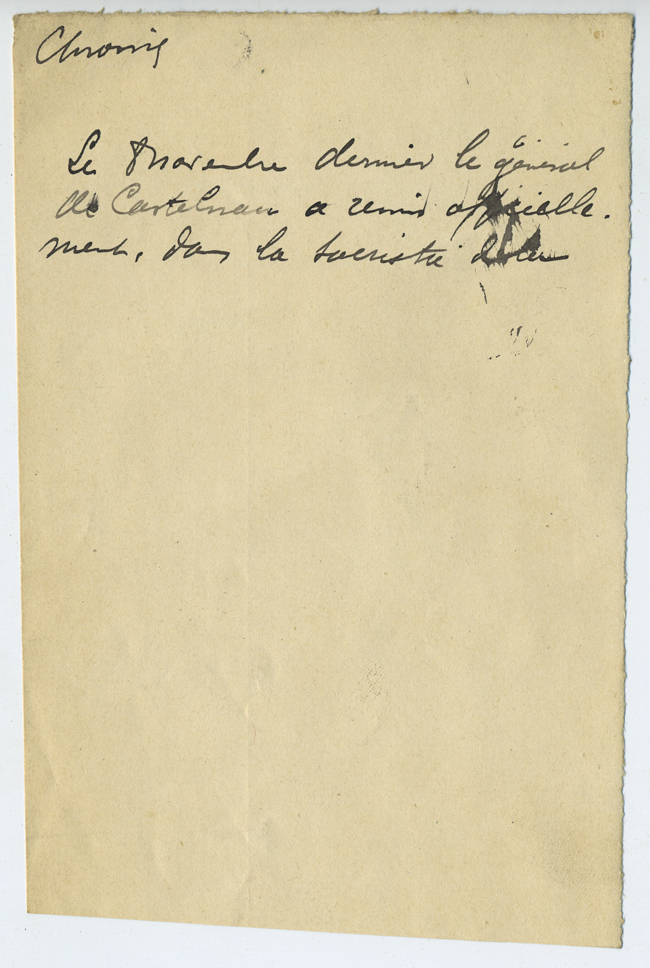 Chroniq
Le 8 Novembre dernier le général
de Castelnau a remis officielle-
ment, dans la sacristie de